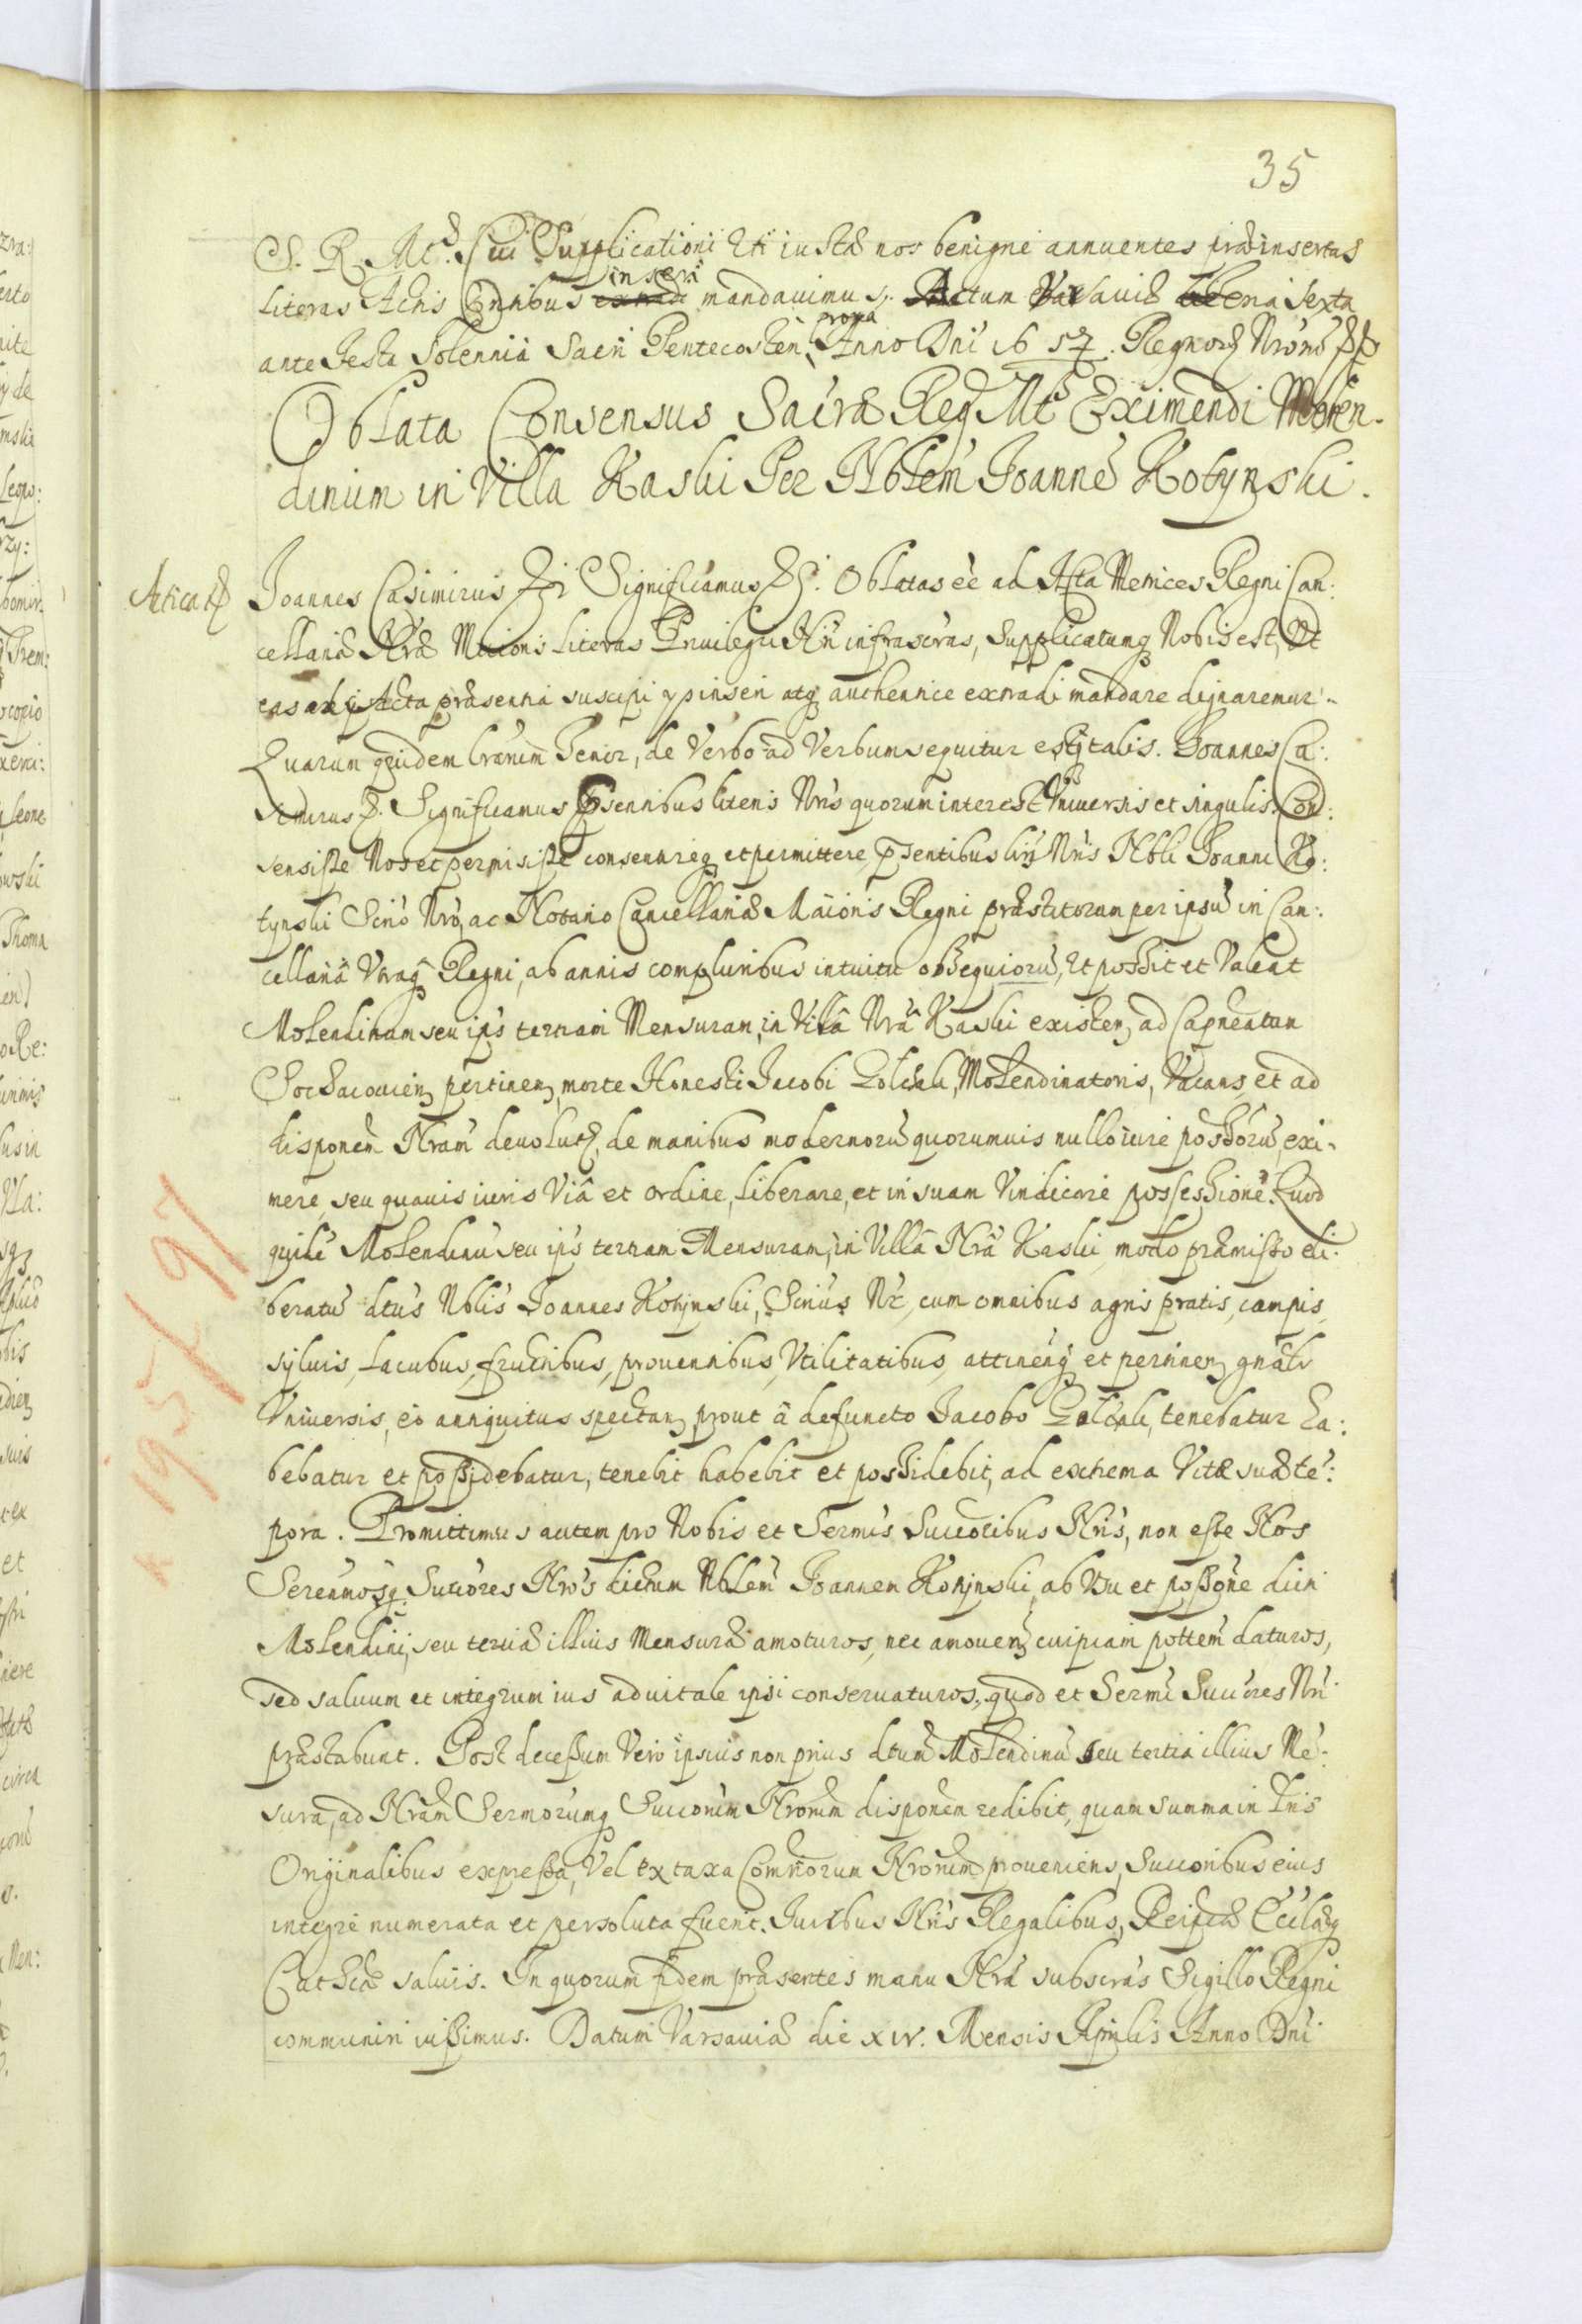 35
S. R. Mtis. Cui Supplicationi Uti iustæ nos benigne annuentes præinsertas
literas Actis Omnibus inseri mandauimus. Actum Varsauiæ feria sexta
ante Festa Solennia Sacri Pentecosten, proxa Anno Dni 1657. Regnorz Nrorum
Oblata Consensus Sacræ Reg Mtis Eximendi Molen-
dinum in Villa Kaski Per Nblem Joannē Kotynski.
Joannes Casimirus Significamus. Oblatas ēē ad Acta Metrices Regni Can:
cellariæ Nræ Maioris literas Priuilegii Nri infrascras, supplicatumq Nobis est, Ut
eas ad Acta præsentia suscipi inseri atq authentice extradi mandare dignaremur.
Quarum quidem lrarum Tenor, de Verbo ad Verbum sequitur estq talis. Joannes Ca:
simirus. Significamus Psentibus literis Nris quorum interest Vniuersis et singulis. Con:
sensisse Nos et permisisse consentireq et permittere, psentibus lris Nris Nbli Joanni Ko:
tynski Scrio Nro, ac Notario Cancellariæ Maioris Regni præstitorum per ipsū in Can:
cellariâ Vtraq Regni, ab annis compluribus intuitu obsequiorū, Ut possit et Valeat
Molendinum seu ips tertiam Mensuram, in Villâ Nrâ Kaski existen, ad Capneatum
Sochacouien pertinen, morte Honesti Jacobi Molendinatoris, Vacans, et ad
disponem Nram deuolut, de manibus modernorū quorumuis nullo iure possorū, exi-
mere, seu quauis iuris Viâ et ordine, liberare, et in suam Vindicare possessionē. Quod
quidē Molendinū seu ips tertiam Mensuram, in Villâ Nrâ Kaski modo præmisso eli:
beratū dtus Nblis Joannes Kotynski, Scrius Nr, cum omnibus agris pratis, campis,
syluis, lacubus, fructibus, prouentibus, Vtilitatibus, attinen et pertinen gnalr
Vniuersis, eò antiquitus spectan, prout â defuncto Jacobo tenebatur ha:
bebatur et possidebatur, tenebit habebit et possidebit, ad extrema Vitæ suæ tē:
pora. Promittimus autem pro Nobis et Sermis Successoribus Nris, non esse Nos
Serenmosq Succores Nros dictum Nblem Joannem Kotynski, ab Vsu et possone dicti
Molendini, seu tertiæ illius Mensuræ amoturos, nec amouen cuipiam pottem daturos,
sed saluum et integrum ius aduitale ipsi conseruaturos, quod et Sermi Succores Nri
præstabunt. Post decessum Vero ipsius non prius dtum Molendinū seu tertia illius Mē:
sura, ad Nram Sermorumq Succorum Nrorum disponem redibit, quam summa in lris
Originalibus expressa, Vel ex taxa Comriorum Nrorum proueniens, Succoribus eius
integre numerata et persoluta fuerit. Juribus Nris Regalibus, Reipcæ Ecclæq
Cathcæ saluis. In quorum fidem præsentes manu Nra subscras Sigillo Regni
communiri iussimus. Datum Varsauiæ die xiv. Mensis Aprilis Anno Dni